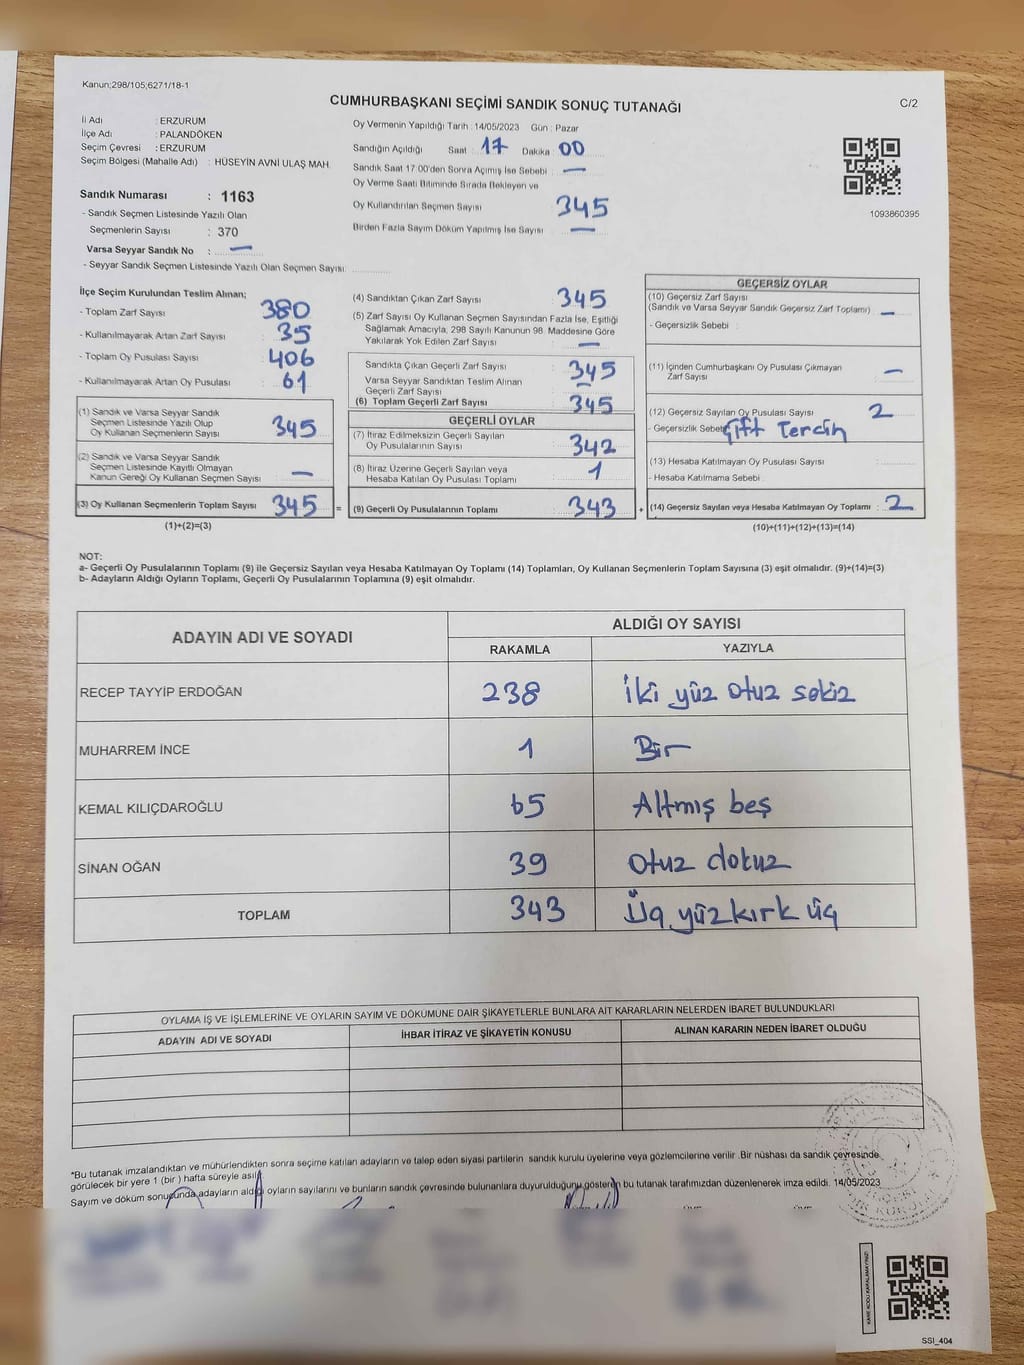 Kanun;298/105;6271/18-1
CUMHURBAŞKANI SEÇİMİ SANDIK SONUÇ TUTANAĞI
C/2
İl Adı : ERZURUM
İlçe Adı : PALANDÖKEN
Seçim Çevresi : ERZURUM
Seçim Bölgesi (Mahalle Adı) : HÜSEYİN AVNİ ULAŞ MAH.
Sandık Numarası : 1163
- Sandık Seçmen Listesinde Yazılı Olan
Seçmenlerin Sayısı : 370
Varsa Seyyar Sandık No : —
- Seyyar Sandık Seçmen Listesinde Yazılı Olan Seçmen Sayısı:
Oy Vermenin Yapıldığı Tarih : 14/05/2023 Gün : Pazar
Sandığın Açıldığı Saat : 17 Dakika 00
Sandık Saat 17:00'den Sonra Açılmış İse Sebebi : —
Oy Verme Saati Bitiminde Sırada Bekleyen ve
Oy Kullandırılan Seçmen Sayısı 345
Birden Fazla Sayım Döküm Yapılmış İse Sayısı : —
1093860395
İlçe Seçim Kurulundan Teslim Alınan;
- Toplam Zarf Sayısı 380
- Kullanılmayarak Artan Zarf Sayısı : 35
- Toplam Oy Pusulası Sayısı 406
- Kullanılmayarak Artan Oy Pusulası : 61
(1) Sandık ve Varsa Seyyar Sandık
Seçmen Listesinde Yazılı Olup
Oy Kullanan Seçmenlerin Sayısı 345
(2) Sandık ve Varsa Seyyar Sandık
Seçmen Listesinde Kayıtlı Olmayan
Kanun Gereği Oy Kullanan Seçmen Sayısı —
(3) Oy Kullanan Seçmenlerin Toplam Sayısı 345 =
(1)+(2)=(3)
(4) Sandıktan Çıkan Zarf Sayısı 345
(5) Zarf Sayısı Oy Kullanan Seçmen Sayısından Fazla İse, Eşitliği
Sağlamak Amacıyla, 298 Sayılı Kanunun 98. Maddesine Göre
Yakılarak Yok Edilen Zarf Sayısı : —
Sandıkta Çıkan Geçerli Zarf Sayısı : 345
Varsa Seyyar Sandıktan Teslim Alınan
Geçerli Zarf Sayısı : —
(6) Toplam Geçerli Zarf Sayısı 345
GEÇERLİ OYLAR
(7) İtiraz Edilmeksizin Geçerli Sayılan
Oy Pusulalarının Sayısı : 342
(8) İtiraz Üzerine Geçerli Sayılan veya
Hesaba Katılan Oy Pusulası Toplamı : 1
(9) Geçerli Oy Pusulalarının Toplamı : 343 +
GEÇERSİZ OYLAR
(10) Geçersiz Zarf Sayısı
(Sandık ve Varsa Seyyar Sandık Geçersiz Zarf Toplamı) : —
- Geçersizlik Sebebi :
(11) İçinden Cumhurbaşkanı Oy Pusulası Çıkmayan
Zarf Sayısı : —
(12) Geçersiz Sayılan Oy Pusulası Sayısı : 2
- Geçersizlik Sebebi Çift Tercih
(13) Hesaba Katılmayan Oy Pusulası Sayısı :
- Hesaba Katılmama Sebebi :
(14) Geçersiz Sayılan veya Hesaba Katılmayan Oy Toplamı : 2
(10)+(11)+(12)+(13)=(14)
NOT:
a- Geçerli Oy Pusulalarının Toplamı (9) ile Geçersiz Sayılan veya Hesaba Katılmayan Oy Toplamı (14) Toplamları, Oy Kullanan Seçmenlerin Toplam Sayısına (3) eşit olmalıdır. (9)+(14)=(3)
b- Adayların Aldığı Oyların Toplamı, Geçerli Oy Pusulalarının Toplamına (9) eşit olmalıdır.
ADAYIN ADI VE SOYADI ALDIĞI OY SAYISI
RAKAMLA YAZIYLA
RECEP TAYYİP ERDOĞAN 238 İki yüz otuz sekiz
MUHARREM İNCE 1 Bir
KEMAL KILIÇDAROĞLU 65 Altmış beş
SİNAN OĞAN 39 Otuz dokuz
TOPLAM 343 Üç yüz kırk üç
OYLAMA İŞ VE İŞLEMLERİNE VE OYLARIN SAYIM VE DÖKÜMÜNE DAİR ŞİKAYETLERLE BUNLARA AİT KARARLARIN NELERDEN İBARET BULUNDUKLARI
ADAYIN ADI VE SOYADI İHBAR İTİRAZ VE ŞİKAYETİN KONUSU ALINAN KARARIN NEDEN İBARET OLDUĞU
*Bu tutanak imzalandıktan ve mühürlendikten sonra seçime katılan adayların ve talep eden siyasi partilerin sandık kurulu üyelerine veya gözlemcilerine verilir .Bir nüshası da sandık çevresinde
görülecek bir yere 1 (bir ) hafta süreyle asılır.
Sayım ve döküm sonucunda adayların aldığı oyların sayılarını ve bunların sandık çevresinde bulunanlara duyurulduğunu gösteren bu tutanak tarafımızdan düzenlenerek imza edildi. 14/05/2023
SSİ_404